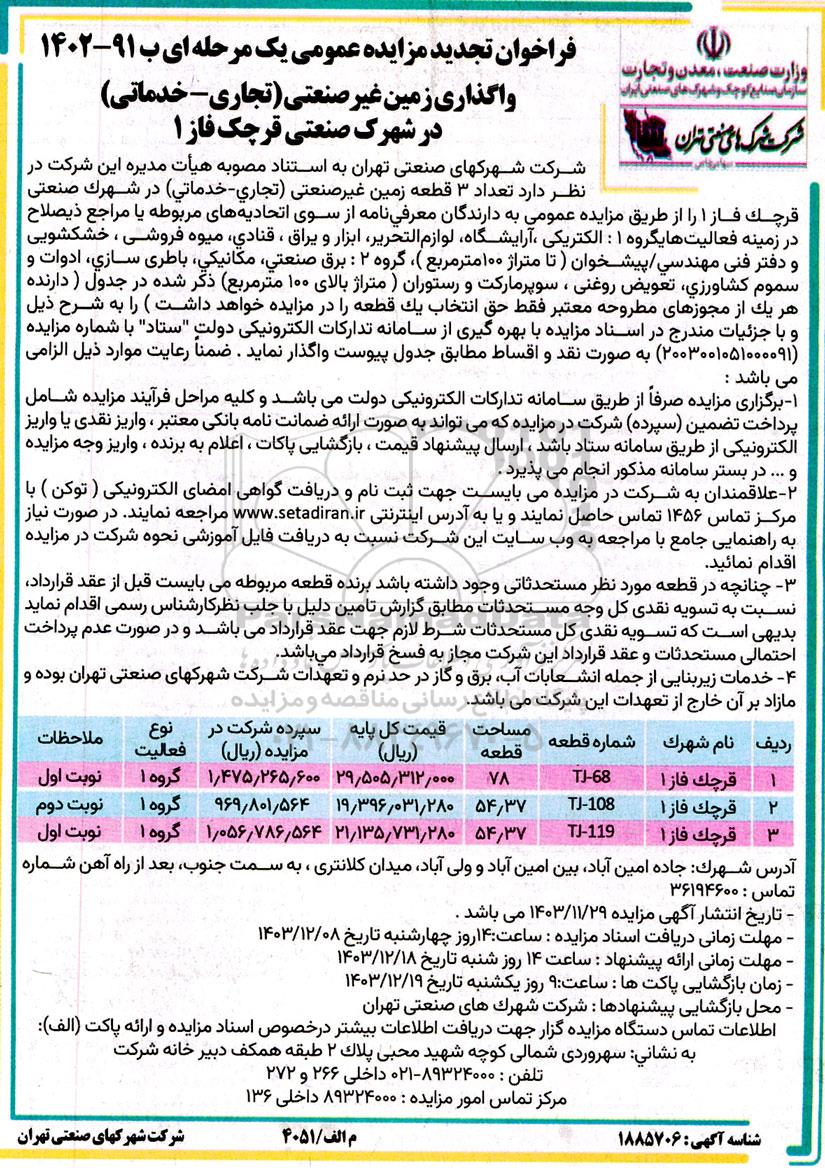 فراخوان تجدید مزایده عمومی یک مرحله ای ب ۹۱-۱۴۰۲
واگذاری زمین غیر صنعتی (تجاری-خدماتی)
در شهرک صنعتی قرچک فاز ۱
وزارت صنعت، معدن و تجارت
سازمان صنایع کوچک و شهرک های صنعتی ایران
شرکت شهرک های صنعتی تهران
سهامی خاص
شرکت شهرکهای صنعتی تهران به استناد مصوبه هیأت مدیره این شرکت در
نظر دارد تعداد ۳ قطعه زمین غیرصنعتی (تجاري-خدماتي) در شهرك صنعتی
قرچك فاز ۱ را از طریق مزایده عمومي به دارندگان معرفي‌نامه از سوی اتحادیه‌های مربوطه یا مراجع ذیصلاح
در زمینه فعالیت‌هایگروه ۱ : الکتریکی ،آرایشگاه، لوازم‌التحریر، ابزار و یراق ، قنادي، میوه فروشی ، خشکشویی
و دفتر فنی مهندسي/پیشخوان ( تا متراژ ۱۰۰مترمربع )، گروه ۲ : برق صنعتي، مکانیکي، باطری سازي، ادوات و
سموم کشاورزي، تعویض روغنی ، سوپرمارکت و رستوران ( متراژ بالای ۱۰۰ مترمربع) ذکر شده در جدول ( دارنده
هر یك از مجوزهای مطروحه معتبر فقط حق انتخاب یك قطعه را در مزایده خواهد داشت ) را به شرح ذیل
و با جزئیات مندرج در اسناد مزایده با بهره گیری از سامانه تدارکات الکترونیکی دولت "ستاد" با شماره مزایده
(۲۰۰۳۰۰۱۰۵۱۰۰۰۰۹۱) به صورت نقد و اقساط مطابق جدول پیوست واگذار نماید . ضمناً رعایت موارد ذیل الزامی
می باشد :
۱-برگزاری مزایده صرفاً از طریق سامانه تدارکات الکترونیکی دولت می باشد و کلیه مراحل فرآیند مزایده شامل
پرداخت تضمین (سپرده) شرکت در مزایده که می تواند به صورت ارائه ضمانت نامه بانکی معتبر ، واریز نقدی یا واریز
الکترونیکی از طریق سامانه ستاد باشد ، ارسال پیشنهاد قیمت ، بازگشایی پاکات ، اعلام به برنده ، واریز وجه مزایده
و ... در بستر سامانه مذکور انجام می پذیرد .
۲-علاقمندان به شرکت در مزایده می بایست جهت ثبت نام و دریافت گواهی امضای الکترونیکی ( توکن ) با
مرکز تماس ۱۴۵۶ تماس حاصل نمایند و یا به آدرس اینترنتی www.setadiran.ir مراجعه نمایند. در صورت نیاز
به راهنمایی جامع با مراجعه به وب سایت این شرکت نسبت به دریافت فایل آموزشی نحوه شرکت در مزایده
اقدام نمائید.
۳- چنانچه در قطعه مورد نظر مستحدثاتی وجود داشته باشد برنده قطعه مربوطه می بایست قبل از عقد قرارداد،
نسبت به تسویه نقدی کل وجه مستحدثات مطابق گزارش تامین دلیل با جلب نظرکارشناس رسمی اقدام نماید
بدیهی است که تسویه نقدی کل مستحدثات شرط لازم جهت عقد قرارداد می باشد و در صورت عدم پرداخت
احتمالی مستحدثات و عقد قرارداد این شرکت مجاز به فسخ قرارداد می‌باشد.
۴- خدمات زیربنایی از جمله انشعابات آب، برق و گاز در حد نرم و تعهدات شرکت شهرکهای صنعتی تهران بوده و
مازاد بر آن خارج از تعهدات این شرکت می باشد.
ردیف | نام شهرك | شماره قطعه | مساحت قطعه | قیمت کل پایه (ریال) | سپرده شرکت در مزایده (ریال) | نوع فعالیت | ملاحظات
۱ | قرچك فاز ۱ | TJ-68 | ۷۸ | ۲۹٫۵۰۵٫۳۱۲٫۰۰۰ | ۱٫۴۷۵٫۲۶۵٫۶۰۰ | گروه ۱ | نوبت اول
۲ | قرچك فاز ۱ | TJ-108 | ۵۴٫۳۷ | ۱۹٫۳۹۶٫۰۳۱٫۲۸۰ | ۹۶۹٫۸۰۱٫۵۶۴ | گروه ۱ | نوبت دوم
۳ | قرچك فاز ۱ | TJ-119 | ۵۴٫۳۷ | ۲۱٫۱۳۵٫۷۳۱٫۲۸۰ | ۱٫۰۵۶٫۷۸۶٫۵۶۴ | گروه ۱ | نوبت اول
آدرس شهرك: جاده امین آباد، بین امین آباد و ولی آباد، میدان کلانتری ، به سمت جنوب، بعد از راه آهن شماره
تماس : ۳۶۱۹۴۶۰۰
- تاریخ انتشار آگهی مزایده ۱۴۰۳/۱۱/۲۹ می باشد .
- مهلت زمانی دریافت اسناد مزایده : ساعت:۱۴روز چهارشنبه تاریخ ۱۴۰۳/۱۲/۰۸
- مهلت زمانی ارائه پیشنهاد : ساعت ۱۴ روز شنبه تاریخ ۱۴۰۳/۱۲/۱۸
- زمان بازگشایی پاکت ها : ساعت:۹ روز یکشنبه تاریخ ۱۴۰۳/۱۲/۱۹
- محل بازگشایی پیشنهادها : شرکت شهرك های صنعتی تهران
اطلاعات تماس دستگاه مزایده گزار جهت دریافت اطلاعات بیشتر درخصوص اسناد مزایده و ارائه پاکت (الف):
به نشاني: سهروردی شمالی کوچه شهید محبی پلاك ۲ طبقه همکف دبیر خانه شرکت
تلفن : ۸۹۳۲۴۰۰۰-۰۲۱ داخلی ۲۶۶ و ۲۷۲
مرکز تماس امور مزایده : ۸۹۳۲۴۰۰۰ داخلی ۱۳۶
شناسه آگهی : ۱۸۸۵۷۰۶
م الف/۴۰۵۱
شرکت شهرکهای صنعتی تهران
ParsNamadData